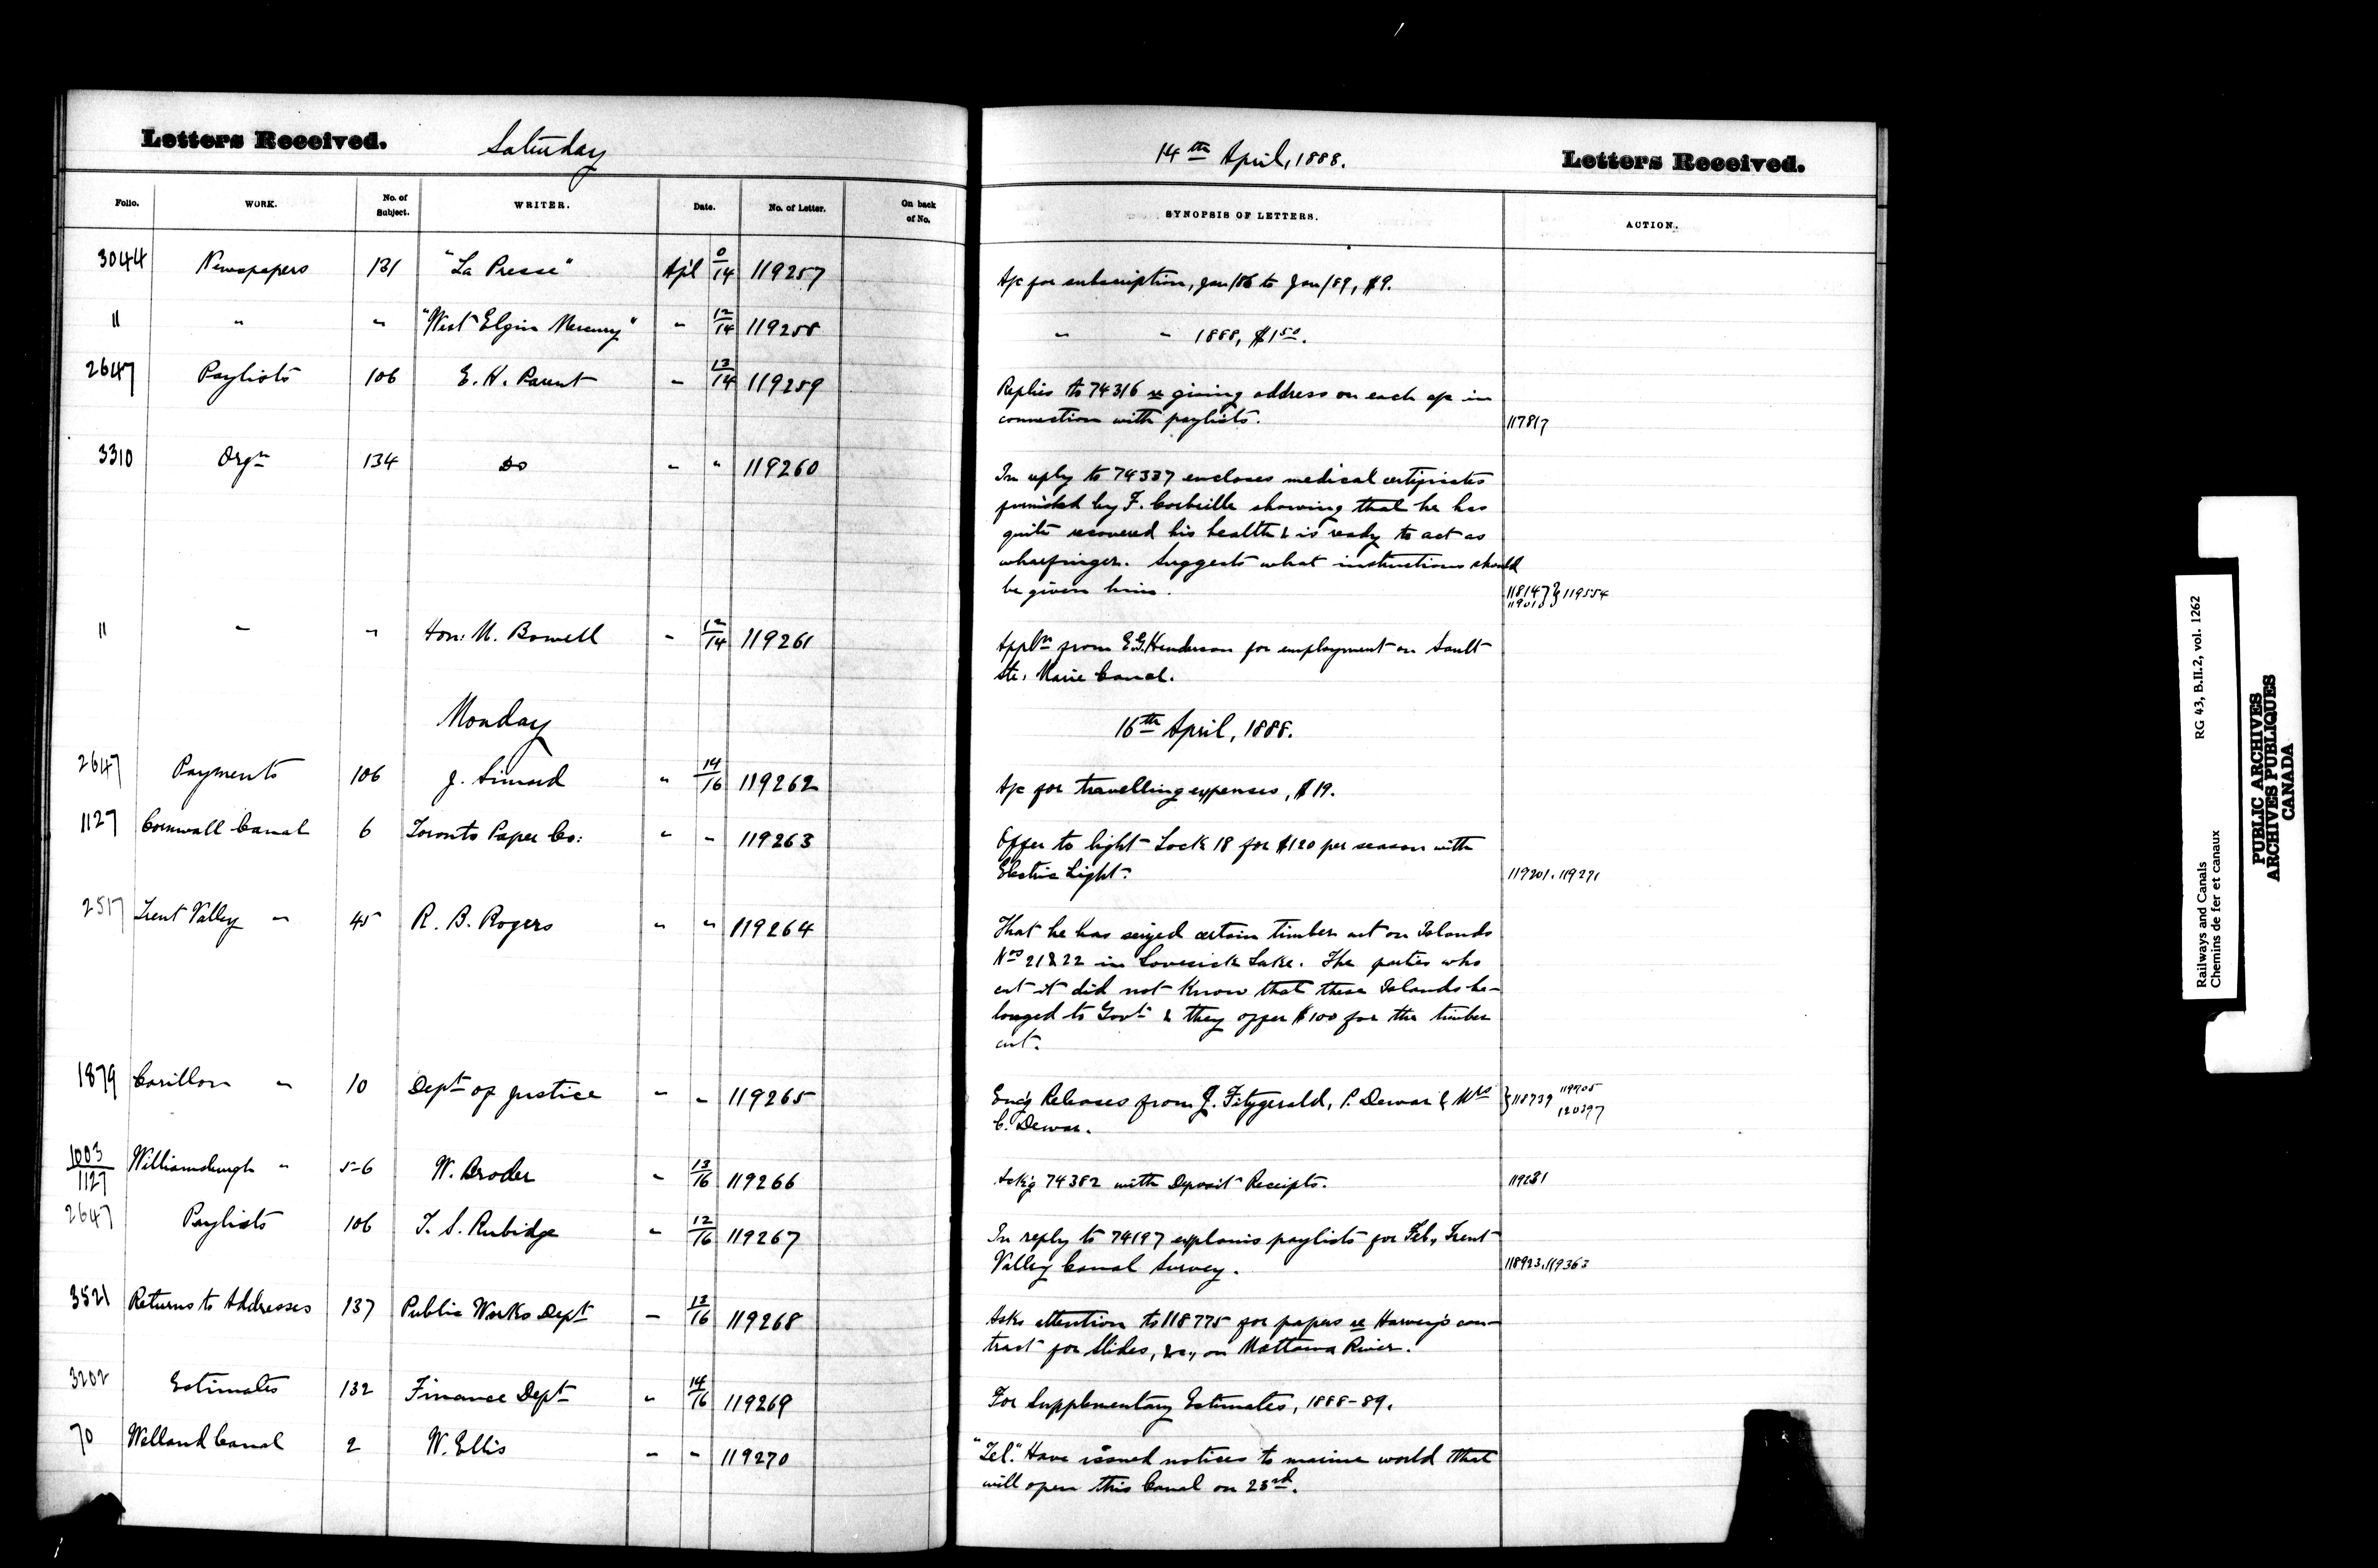 Letters Received. Saturday 14th April, 1888. Letters Received.
Folio. WORK. No. of Subject. WRITER. Date. No. of Letter. On back of No. SYNOPSIS OF LETTERS. ACTION.
3044 Newspapers 131 "La Presse" Apl 14 119257 A/c for subscription, Jan/86 to Jan/89, $9.
" " " "West Elgin Mercury" " 12/14 119258 " " 1888, $1 50.
2647 Paylists 106 E. H. Parent " 13/14 119259 Replies to 74316 re giving address on each a/c in
connection with paylists. 117817
3310 Orgn 134 Do " " 119260 In reply to 74337 encloses medical certificates
furnished by F. Corbeille showing that he has
quite recovered his health & is ready to act as
wharfinger. Suggests what instructions should
be given him. 118147 } 119554
" " " Hon: M. Bowell " 12/14 119261 Appln from E.G. Henderson for employment on Sault
Ste. Marie Canal.
Monday 16th April, 1888.
2647 Payments 106 J. Simard " 14/16 119262 A/c for travelling expenses, $19.
1127 Cornwall Canal 6 Toronto Paper Co: " " 119263 Offer to light Lock 18 for $120 per season with
Electric Light. 119201. 119271
2517 Trent Valley " 45 R. B. Rogers " " 119264 That he has seized certain timber cut on Islands
Nos 21 & 22 in Lovesick Lake. The parties who
cut it did not know that these Islands be-
longed to Govt & they offer $100 for the timber
cut.
1879 Carillon " 10 Dept of Justice " " 119265 Encg Releases from J. Fitzgerald, P. Dewar & Mrs } 118739 119705
C. Dewar. 120397
1003/1127 Williamsburgh " 5-6 W. Broder " 13/16 119266 Ackg 74382 with Deposit Receipts. 119281
2647 Paylists 106 T. S. Rubidge " 12/16 119267 In reply to 74197 explains paylists for Feb, Trent
Valley Canal Survey. 118923. 119363
3521 Returns to Addresses 137 Public Works Dept " 13/16 119268 Asks attention to 118775 for papers re Harvey's con-
tract for Slides, &c., on Mattawa River.
3202 Estimates 132 Finance Dept " 14/16 119269 For Supplementary Estimates, 1888-89.
70 Welland Canal 2 W. Ellis " " 119270 "Tel." Have issued notices to marine world that
will open this Canal on 23rd.
Railways and Canals RG 43, B.II.2, vol. 1262
Chemins de fer et canaux
PUBLIC ARCHIVES
ARCHIVES PUBLIQUES
CANADA